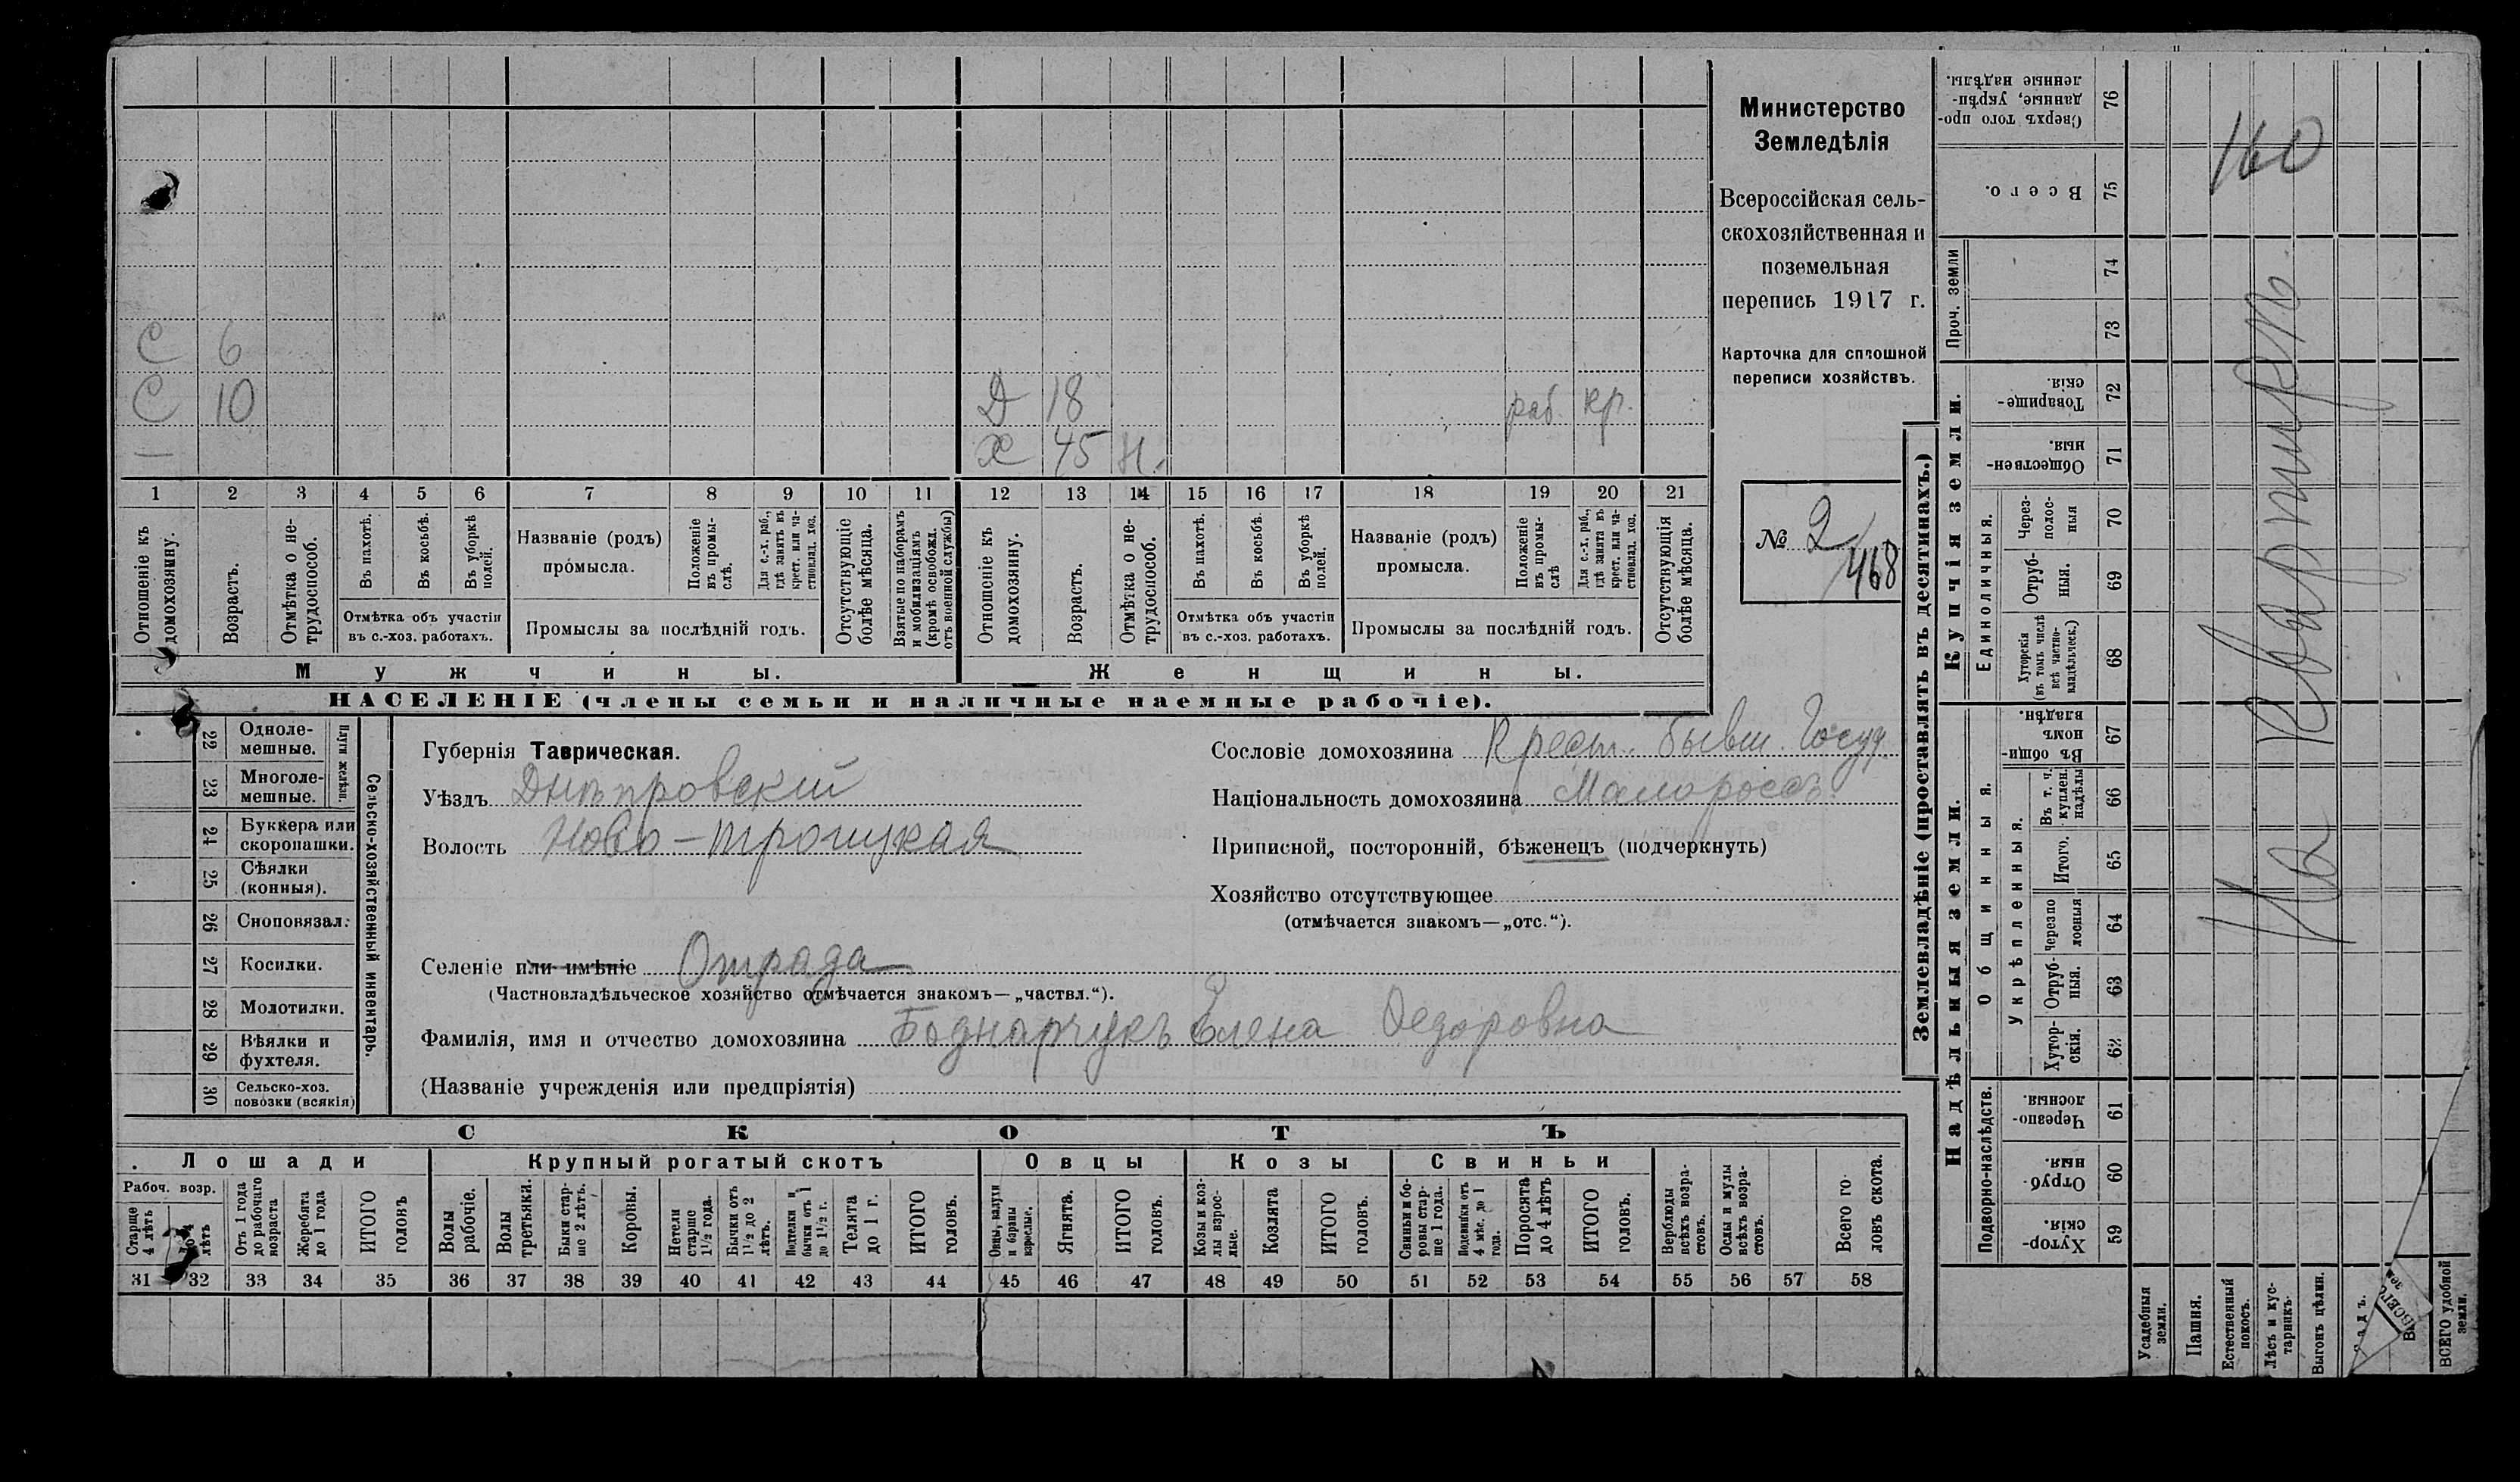 С 6
С 10
Д 18 раб. кр.
— Х 45 н.
1 2 3 4 5 6 7 8 9 10 11 12 13 14 15 16 17 18 19 20 21
Отношеніе къ домохозяину.
Возрастъ.
Отмѣтка о не-
трудоспособ.
Въ пахотѣ.
Въ косьбѣ.
Въ уборкѣ полей.
Отмѣтка объ участіи
въ с.-хоз. работахъ.
Названіе (родъ)
промысла.
Положеніе
въ промы-
слѣ.
Для с.-х. раб.,
гдѣ занятъ въ
крест. или ча-
стновлад. хоз.
Промыслы за послѣдній годъ.
Отсутствующіе
болѣе мѣсяца.
Взятые по наборамъ
и мобилизаціямъ
(кромѣ освобожд.
отъ военной службы)
Отношеніе къ
домохозяину.
Возрастъ.
Отмѣтка о не-
трудоспособ.
Въ пахотѣ.
Въ косьбѣ.
Въ уборкѣ
полей.
Отмѣтка объ участіи
въ с.-хоз. работахъ.
Названіе (родъ)
промысла.
Положеніе
въ промы-
слѣ
Для с.-х. раб.,
гдѣ занята въ
крест. или ча-
стновлад. хоз.
Промыслы за послѣдній годъ.
Отсутствующія
болѣе мѣсяца.
Мужчины.
Женщины.
НАСЕЛЕНІЕ (члены семьи и наличные наемные рабочіе).
Министерство
Земледѣлія
Всероссійская сель-
скохозяйственная и
поземельная
перепись 1917 г.
Карточка для сплошной
переписи хозяйствъ.
№ 2/468
22 Одноле-
мешные.
23 Многоле-
мешные.
Плуги желѣзн.
24 Буккера или
скоропашки.
25 Сѣялки
(конныя).
26 Сноповязал.
27 Косилки.
28 Молотилки.
29 Вѣялки и
фухтеля.
30 Сельско-хоз.
повозки (всякія)
Сельско-хозяйственный инвентарь.
Губернія Таврическая.
Уѣздъ Днѣпровскій
Волость Ново-Троицкая
Селеніе или имѣніе Отрада
(Частновладѣльческое хозяйство отмѣчается знакомъ—„частвл.“).
Фамилія, имя и отчество домохозяина Боднарчукъ Елена Федоровна
(Названіе учрежденія или предпріятія)
Сословіе домохозяина Крест. бывш. Госуд.
Національность домохозяина Малороссъ.
Приписной, посторонній, бѣженецъ (подчеркнуть)
Хозяйство отсутствующее
(отмѣчается знакомъ—„отс.“).
СКОТЪ
Лошади
Крупный рогатый скотъ
Овцы
Козы
Свиньи
Рабоч. возр.
Старше
4 лѣтъ
до 4
лѣтъ
Отъ 1 года
до рабочаго
возраста
Жеребята
до 1 года
ИТОГО
головъ
Волы
рабочіе.
Волы
третьяки.
Быки стар-
ше 2 лѣтъ.
Коровы.
Нетели
старше
1½ года.
Бычки отъ
1½ до 2
лѣтъ.
Подтелки и
бычки отъ 1
до 1½ г.
Телята
до 1 г.
ИТОГО
головъ.
Овцы, валухи
и бараны
взрослые.
Ягнята.
ИТОГО
головъ.
Козы и коз-
лы взрос-
лые.
Козлята
ИТОГО
головъ.
Свиньи и бо-
ровы стар-
ше 1 года.
Подсвинки отъ
4 мѣс. до 1
года.
Поросята
до 4 лѣтъ
ИТОГО
головъ.
Верблюды
всѣхъ возра-
стовъ.
Ослы и мулы
всѣхъ возра-
стовъ.
Всего го-
ловъ скота.
31 32 33 34 35 36 37 38 39 40 41 42 43 44 45 46 47 48 49 50 51 52 53 54 55 56 57 58
Землевладѣніе (проставлять въ десятинахъ.)
Надѣльныя земли.
Купчія земли.
Проч. земли
Подворно-наслѣдств.
Общинныя.
Укрѣпленныя.
Единоличныя.
Хутор-
скія. 59
Отруб-
ныя. 60
Черезпо-
лосныя. 61
Хутор-
скія. 62
Отруб-
ныя. 63
Черезпо
лосныя 64
Итого. 65
Въ т. ч.
куплен.
надѣлы 66
Въ общи-
номъ
владѣн. 67
Хуторскія
(въ томъ числѣ
всѣ частно-
владѣльческ.) 68
Отруб-
ныя. 69
Через-
полос-
ныя 70
Обществен-
ныя. 71
Товарище-
скія. 72
73
74
Всего. 75
Сверхъ того про-
данные, укрѣп-
ленные надѣлы. 76
Усадебныя
земли.
Пашня.
Естественный
покосъ.
Лѣсъ и кус-
тарникъ
Выгонъ цѣлин.
ВСЕГО удобной
земли.
На квартирѣ.
160